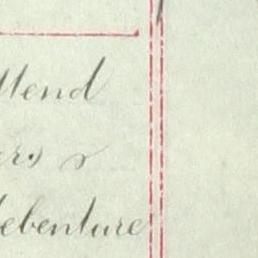 ttend
ers &
debenture